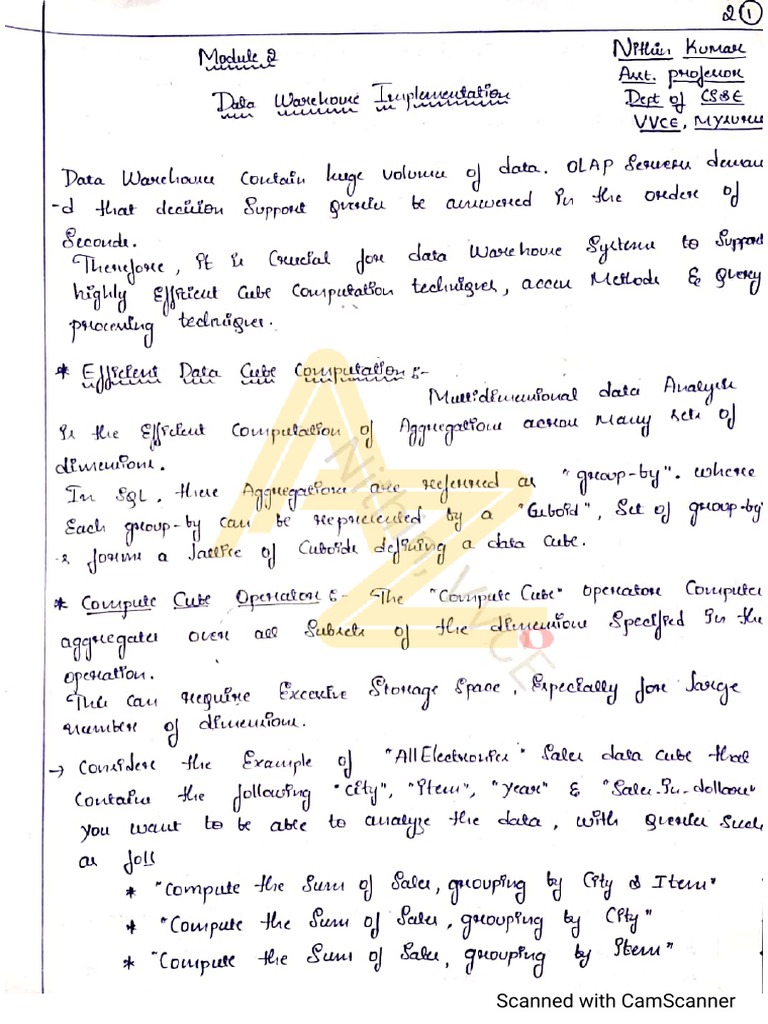 2 1
Module 2
Nithin Kumar
Asst. professor
Data Warehouse Implementation
Dept of CS&E
VVCE, Mysuru
Data Warehouse contain huge volume of data. OLAP Servers deman
-d that decision Support Queries be answered in the order of
Seconds.
Therefore, it is Crucial for data Warehouse Systems to Support
highly Efficient Cube Computation techniques, access Methods & Query
processing techniques.
* Efficient Data Cube Computation :-
Multidimensional data Analysis
is the Efficient Computation of Aggregations across Many sets of
dimensions.
In SQL, these Aggregations are referred as "group-by". where
Each group-by can be represented by a "Cuboid", Set of group-by'
-s forms a Lattice of Cuboids defining a data Cube.
* Compute Cube Operator :- The "Compute Cube" operator Computes
aggregates over all Subsets of the dimensions Specified in the
operation.
This can require Excessive Storage Space, Especially for Large
number of dimensions.
→ Consider the Example of "AllElectronics" Sales data cube that
Contains the following "City", "Item", "year" & "Sales-in-dollars"
you want to be able to analyze the data, with Queries Such
as foll
* "Compute the Sum of Sales, grouping by City & Item"
* "Compute the Sum of Sales, grouping by City"
* "Compute the Sum of Sales, grouping by Item"
AZ
Nithin, VVCE
Scanned with CamScanner